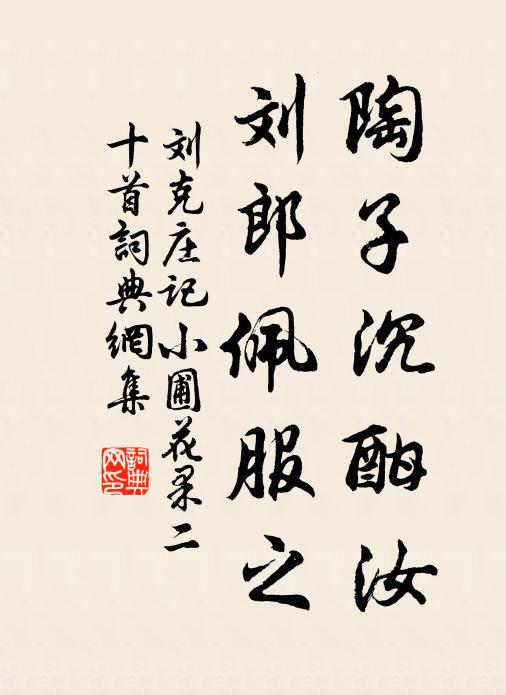 陶子沉酣汝
刘郎佩服之
刘克庄记小圃花果二
十首詞典網集
詞典
网印